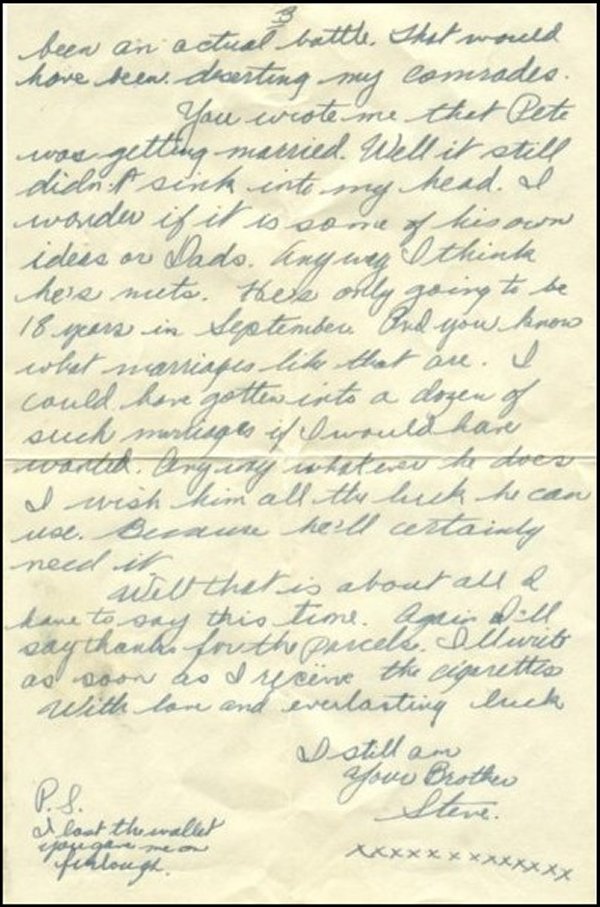 3
been an actual battle. That would
have been deserting my comrades.
You wrote me that Pete
was getting married. Well it still
didn't sink into my head. I
wonder if it is some of his own
ideas or Dads. Anyway I think
he's nuts. He's only going to be
18 years in September. And you know
what marriages like that are. I
could have gotten into a dozen of
such marriages if I would have
wanted. Anyway whatever he does
I wish him all the luck he can
use. Because he'll certainly
need it
Well that is about all I
have to say this time. Again I'll
say thanks for the parcels. I'll write
as soon as I receive the cigarettes
With love and everlasting luck
I still am
Your Brother
Steve.
P.S.
I lost the wallet
you gave me on
furlough.
xxxxxxxxxxxxx